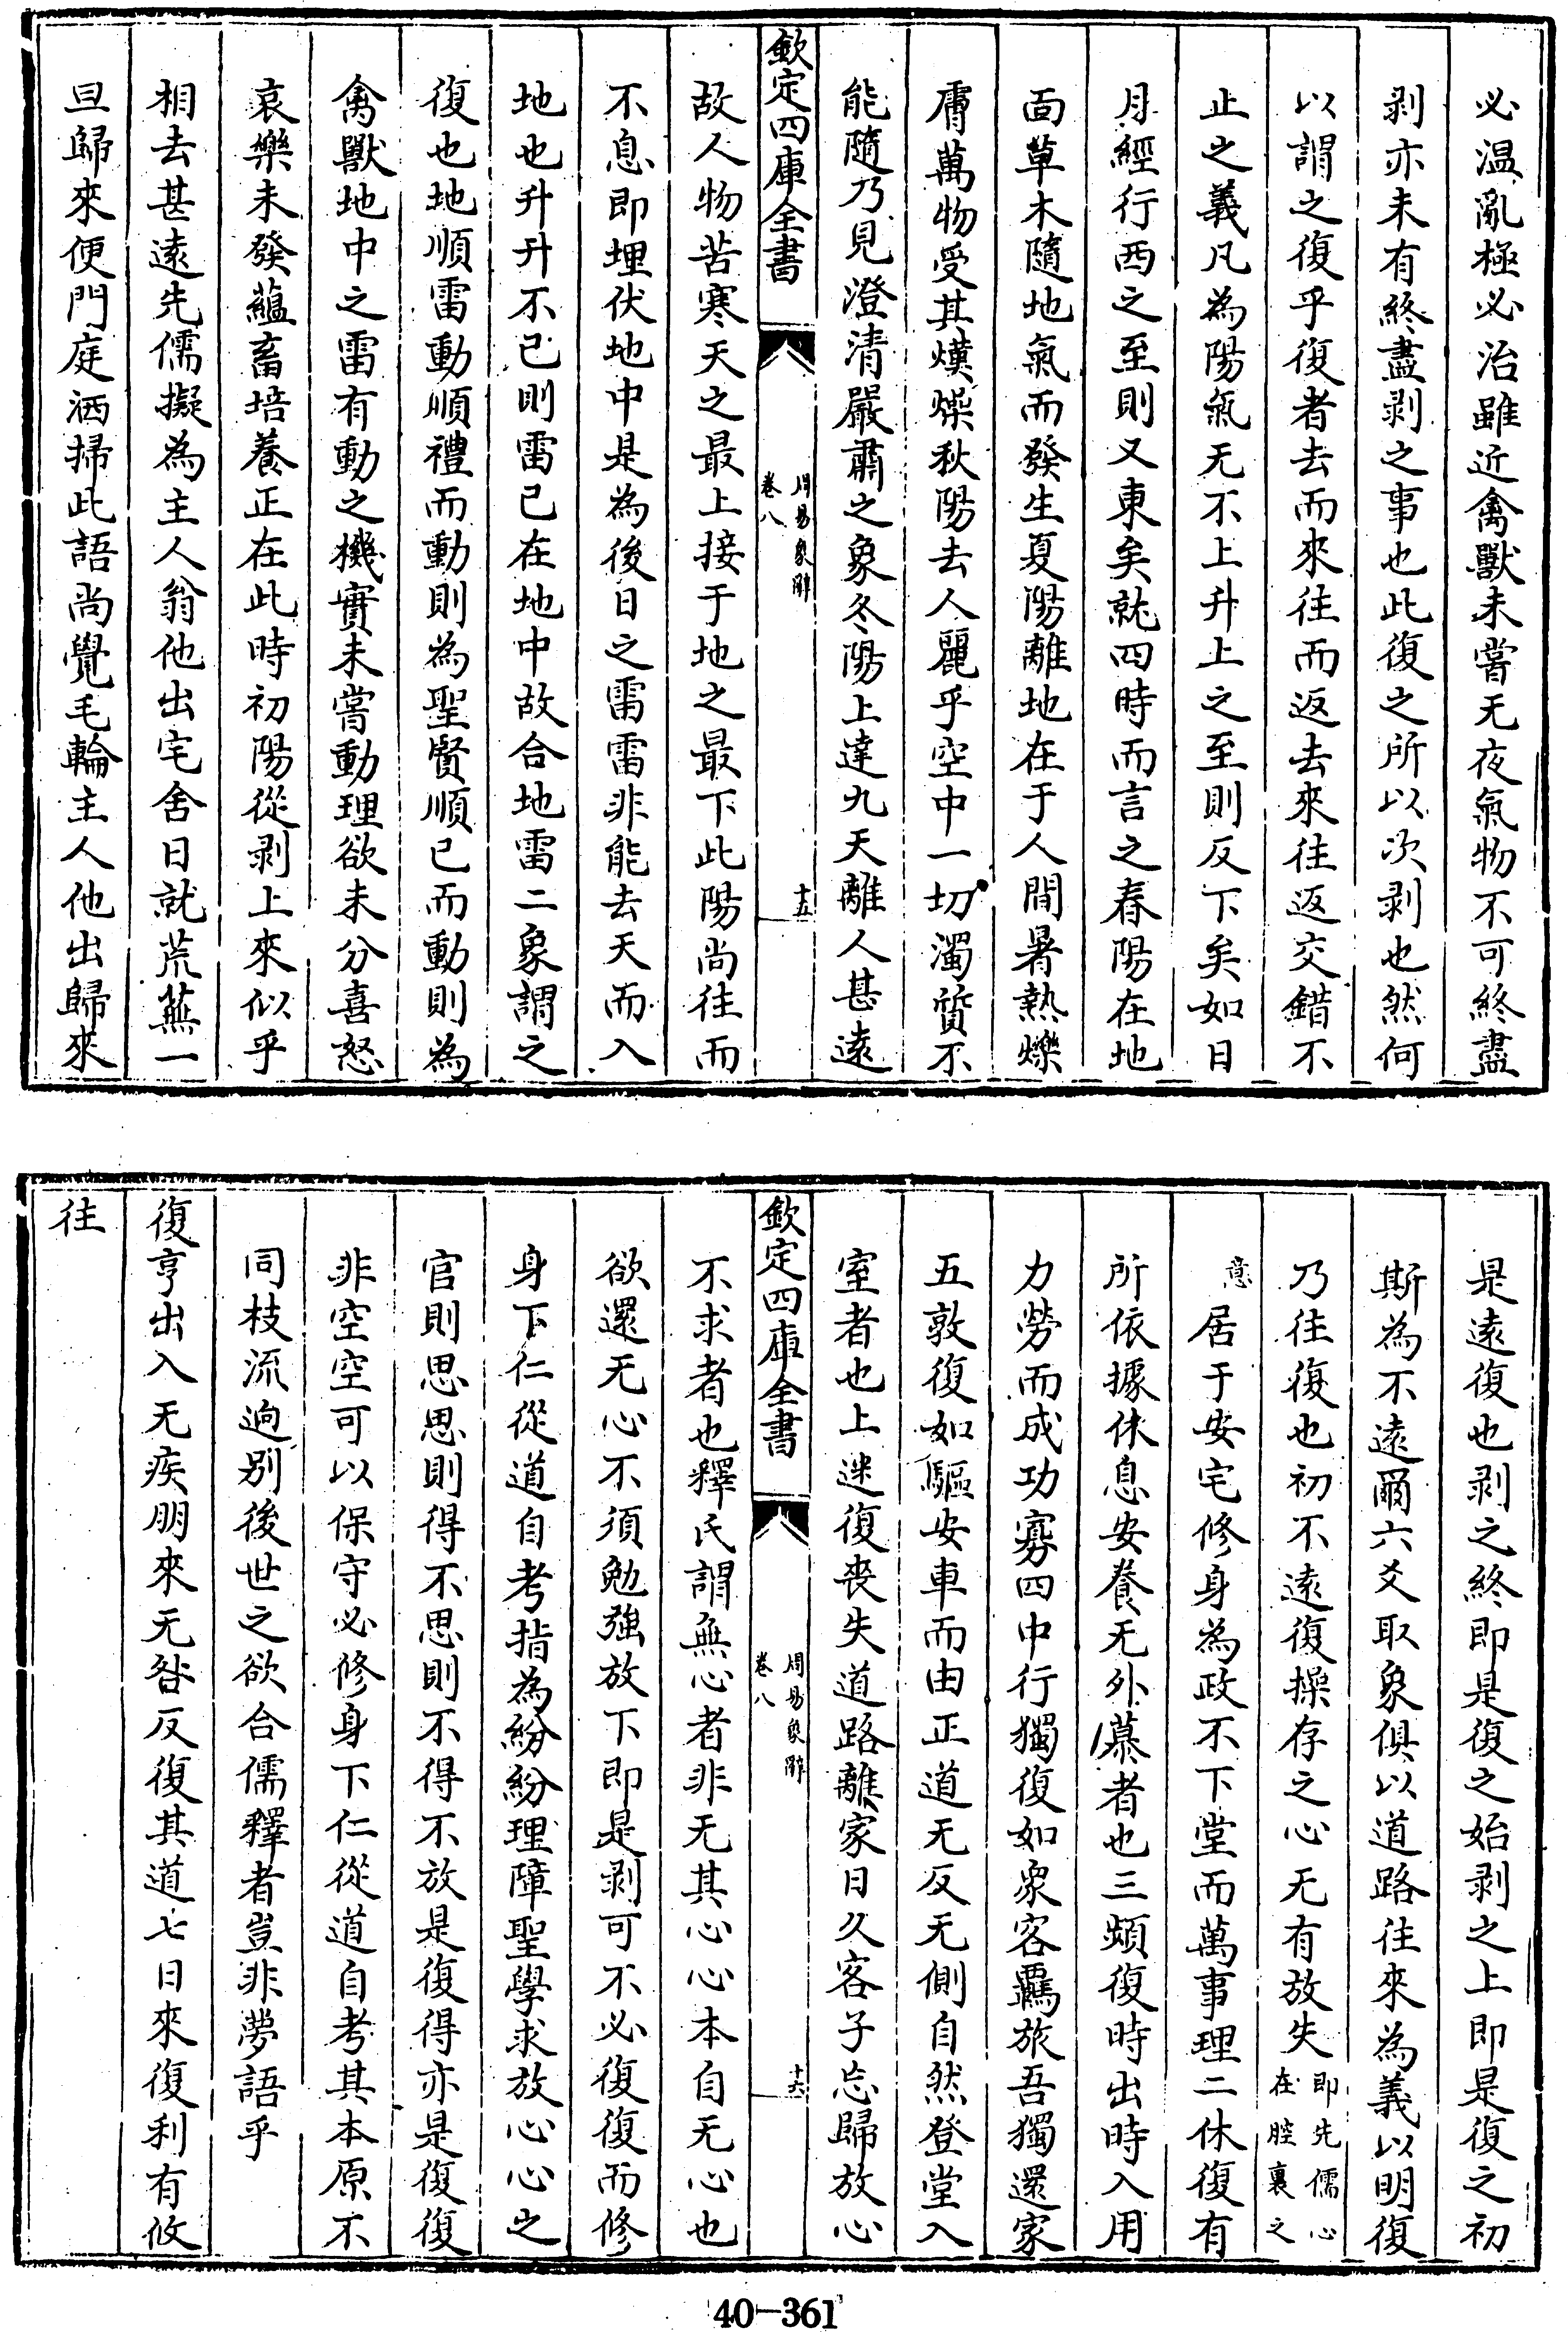 必温亂極必治雖近禽獸未嘗无夜氣物不可終盡
剥亦未有終盡剥之事也此復之所以次剥也然何
以謂之復乎復者去而來往而返去來往返交錯不
止之義凡為陽氣无不上升上之至則反下矣如日
月經行西之至則又東矣就四時而言之春陽在地
面草木隨地氣而發生夏陽離地在于人間暑熱爍
膚萬物受其熯燥秋陽去人麗乎空中一切濁質不
能隨乃見澄清嚴肅之象冬陽上達九天離人甚遠
欽定四庫全書
周易象辭
卷八
十五
故人物苦寒天之最上接于地之最下此陽尚往而
不息即埋伏地中是為後日之雷雷非能去天而入
地也升升不已則雷已在地中故合地雷二象謂之
復也地順雷動順禮而動則為聖賢順已而動則為
禽獸地中之雷有動之機實未嘗動理欲未分喜怒
哀樂未發蘊畜培養正在此時初陽從剥上來似乎
相去甚遠先儒擬為主人翁他出宅舍日就荒蕪一
旦歸來便門庭洒掃此語尚覺毛輪主人他出歸來
是遠復也剥之終即是復之始剥之上即是復之初
斯為不遠爾六爻取象俱以道路往來為義以明復
乃往復也初不遠復操存之心无有放失即先儒心在腔裏之
意居于安宅修身為政不下堂而萬事理二休復有
所依據休息安養无外慕者也三頻復時出時入用
力勞而成功寡四中行獨復如衆客羈旅吾獨還家
五敦復如驅安車而由正道无反无側自然登堂入
室者也上迷復喪失道路離家日久客子忘歸放心
欽定四庫全書
周易象辭
卷八
十六
不求者也釋氏謂無心者非无其心心本自无心也
欲還无心不須勉強放下即是剥可不必復復而修
身下仁從道自考指為紛紛理障聖學求放心心之
官則思思則得不思則不得不放是復得亦是復復
非空空可以保守必修身下仁從道自考其本原不
同枝流逈别後世之欲合儒釋者豈非夢語乎
復亨出入无疾朋來无咎反復其道七日來復利有攸
往
40-361